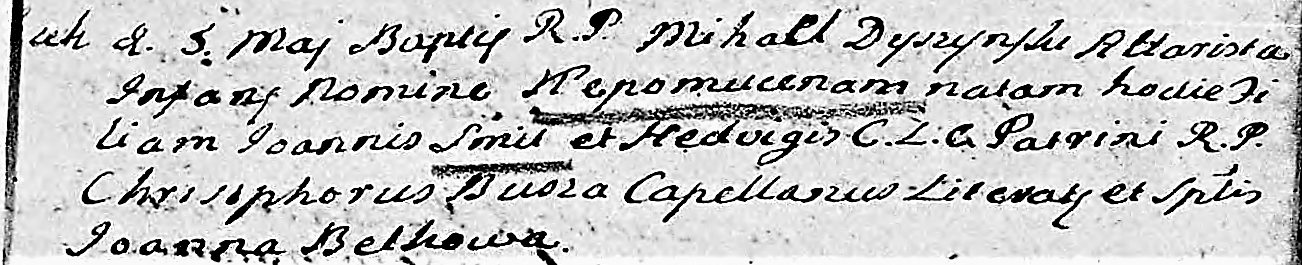 d. 5. Maj Baptiz R.P. Mihael Dyszynski Altarista
Infans Nomine Nepomucenam natam hodie fi
liam Joannis Smit et Hedvigis C.L.C. Patrini R.P.
Christphorus Busza Capellanus Literatz et Sptis
Joanna Belhowa.